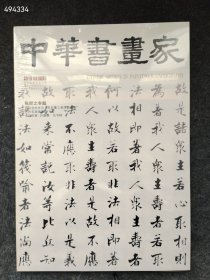 494334
中華書畫家
故是諸眾生若心取相則
為著我人眾生壽者若取
法相即著我人眾生壽者
何以故若取非法相即著
我人眾生壽者是故不應
取法不應取非法以是義
故如來常說汝等比丘知
我說法如筏喻者法尚應